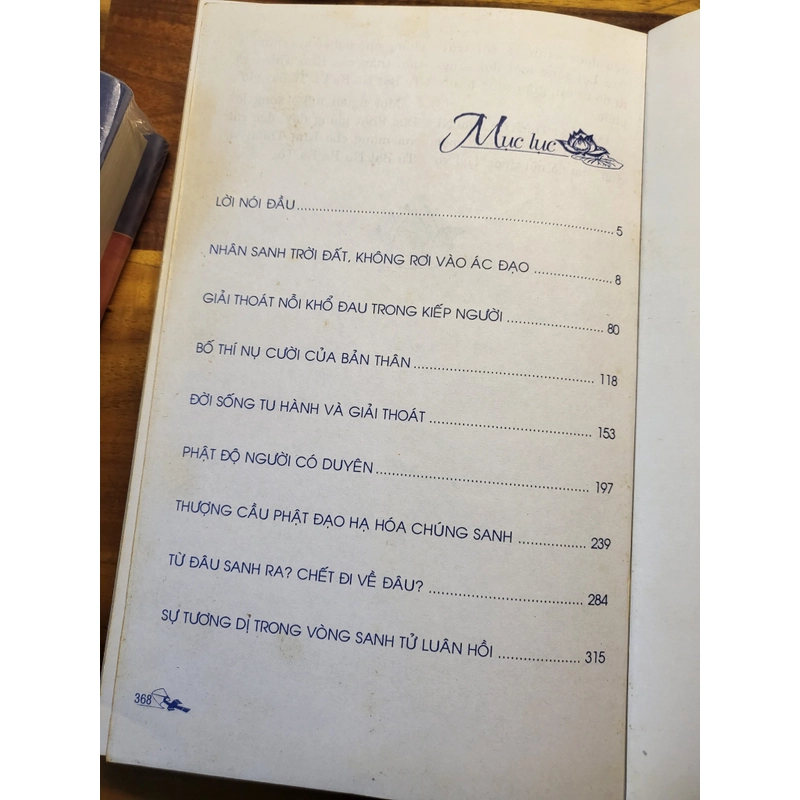 Mục lục
LỜI NÓI ĐẦU........................................................5
NHÂN SANH TRỜI ĐẤT, KHÔNG RƠI VÀO ÁC ĐẠO ................8
GIẢI THOÁT NỖI KHỔ ĐAU TRONG KIẾP NGƯỜI ....................80
BỐ THÍ NỤ CƯỜI CỦA BẢN THÂN....................................118
ĐỜI SỐNG TU HÀNH VÀ GIẢI THOÁT ................................153
PHẬT ĐỘ NGƯỜI CÓ DUYÊN..........................................197
THƯỢNG CẦU PHẬT ĐẠO HẠ HÓA CHÚNG SANH ..............239
TỪ ĐÂU SANH RA? CHẾT ĐI VỀ ĐÂU? ..............................284
SỰ TƯƠNG DỊ TRONG VÒNG SANH TỬ LUÂN HỒI ................315
368